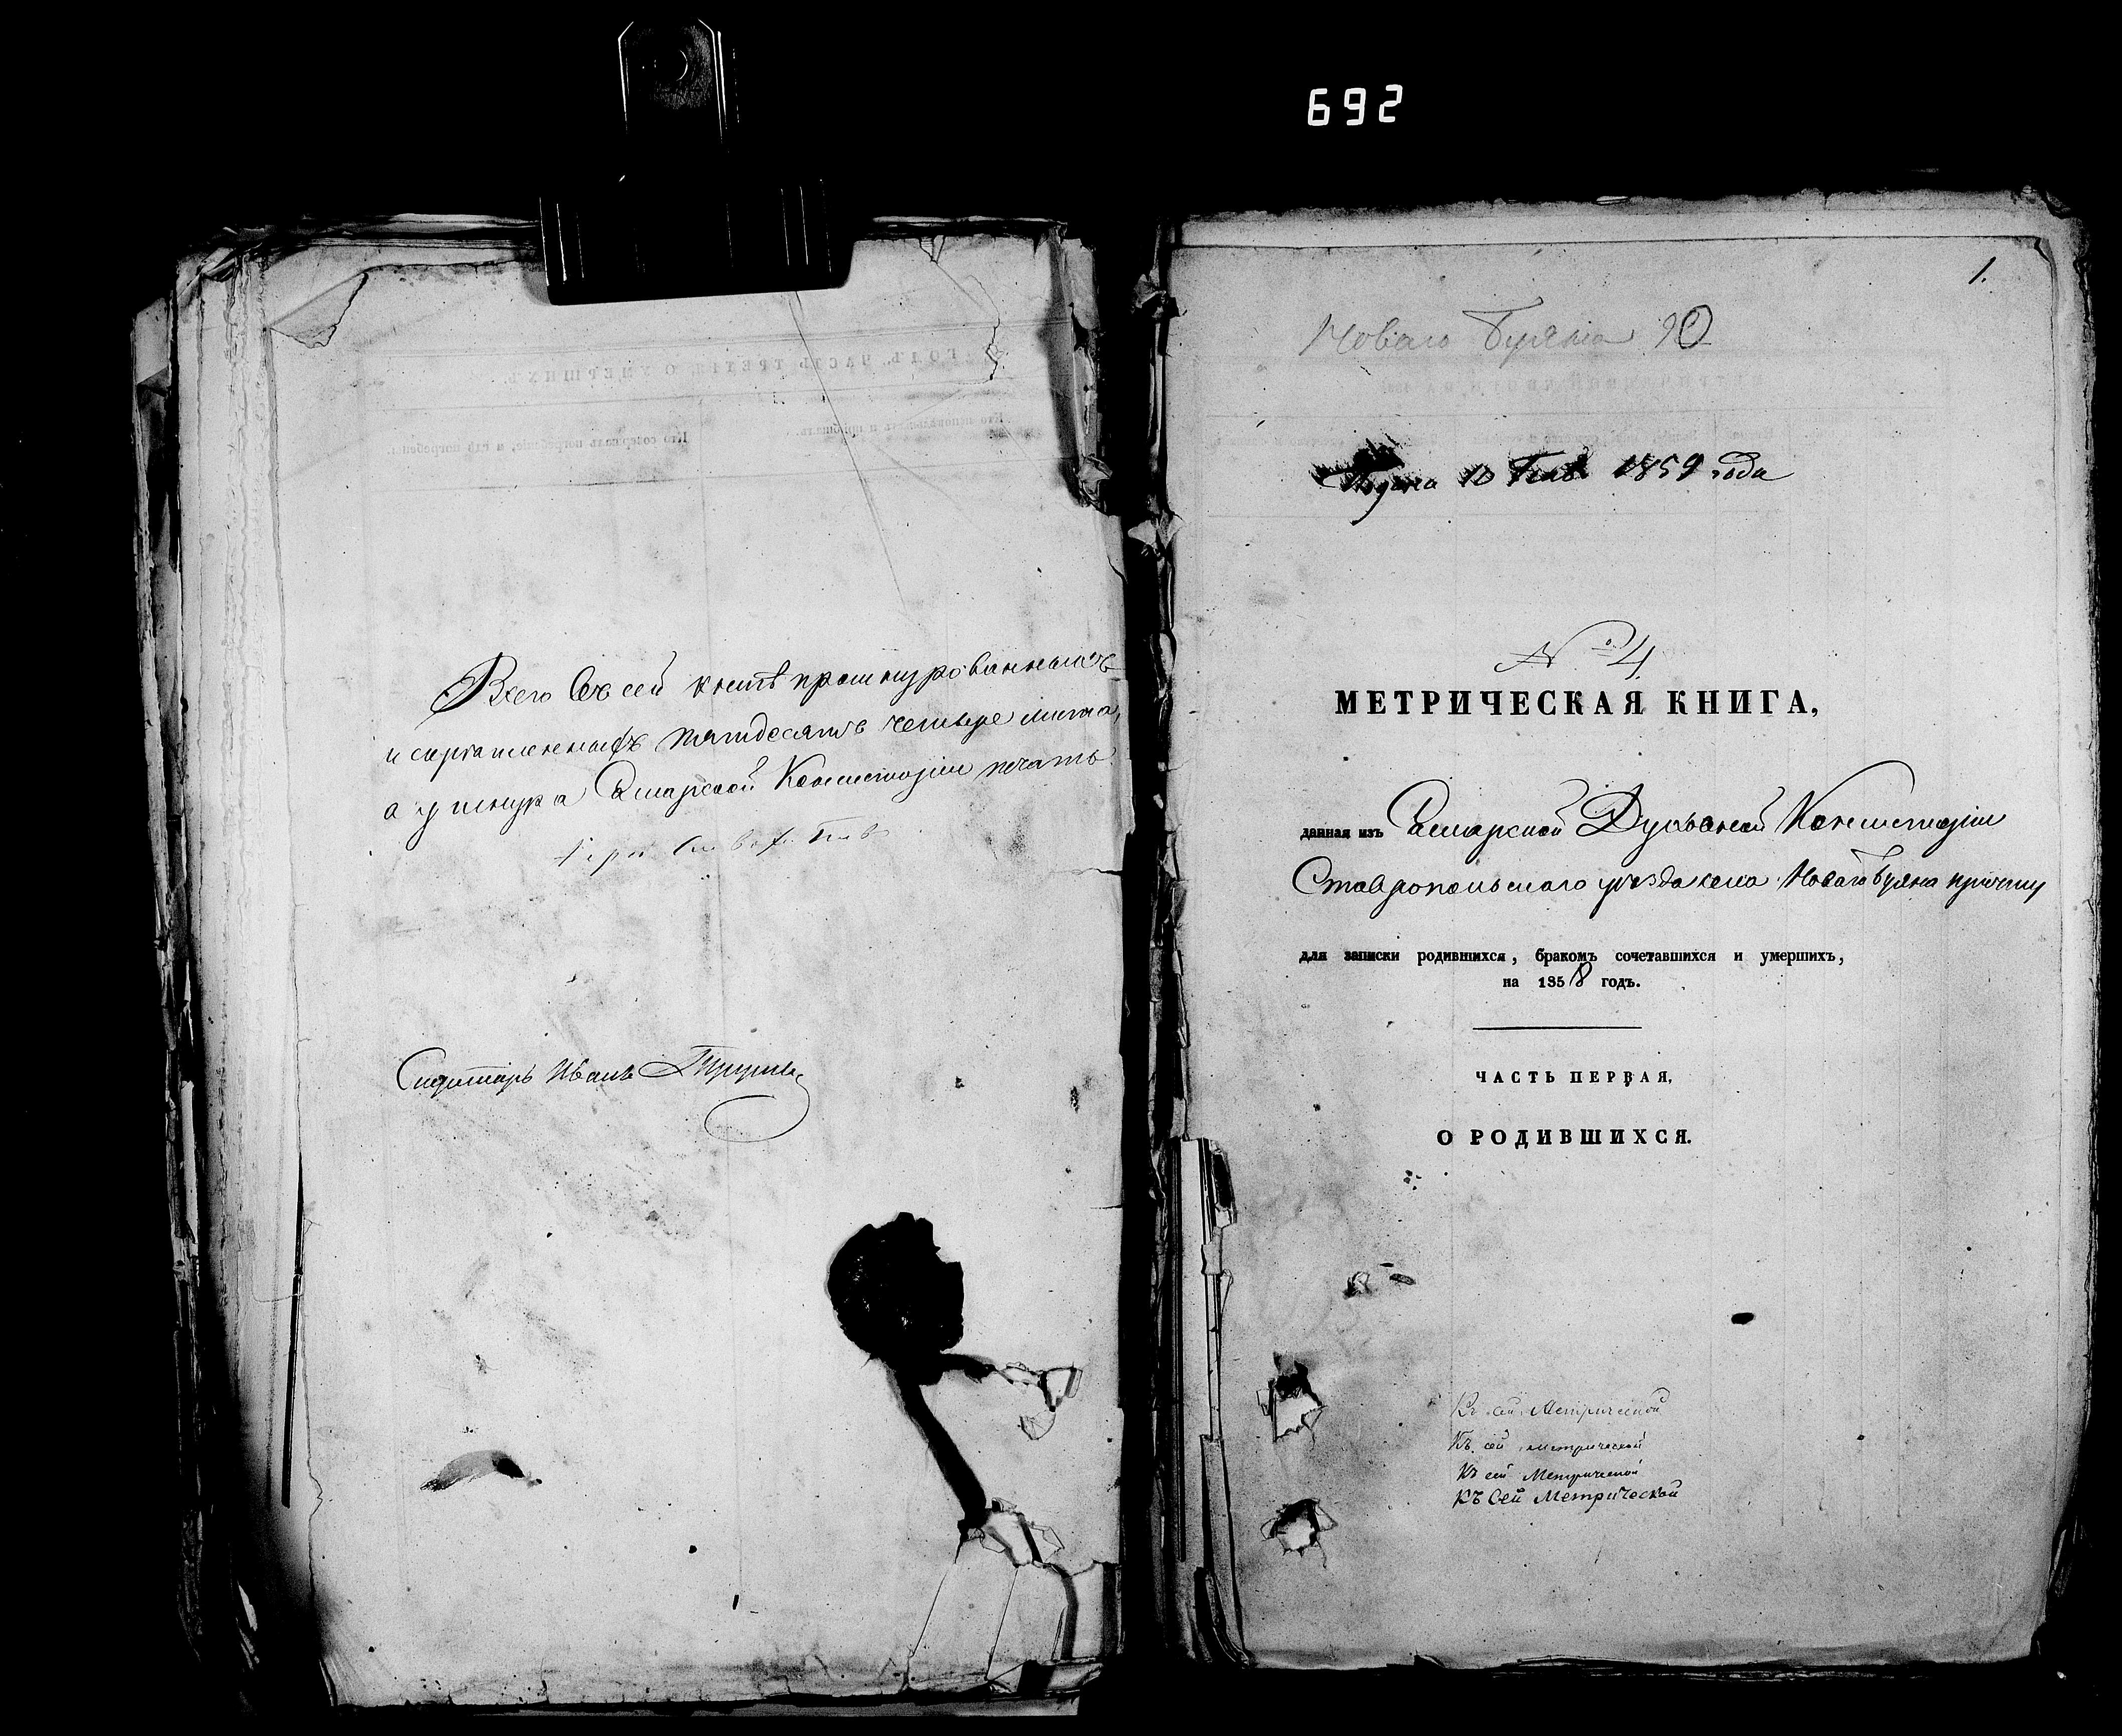 692
Всего въ сей книгѣ прошнурованныхъ
и скрѣпленныхъ пятдесятъ четыре листа,
а у шнура Самарской Консисторіи печать
Секретарь Иванъ
1.
Новаго Буяна 90
Подана 10 Генв 1859 года
№ 4
МЕТРИЧЕСКАЯ КНИГА,
данная изъ Самарской Духовной Консисторіи
Ставропольскаго уѣзда села Новаго Буяна причту
для записки родившихся, бракомъ сочетавшихся и умершихъ,
на 1858 годъ.
ЧАСТЬ ПЕРВАЯ,
О РОДИВШИХСЯ.
Къ сей Метрической
Къ сей метрической
Къ сей Метрической
Къ Сей Метрической